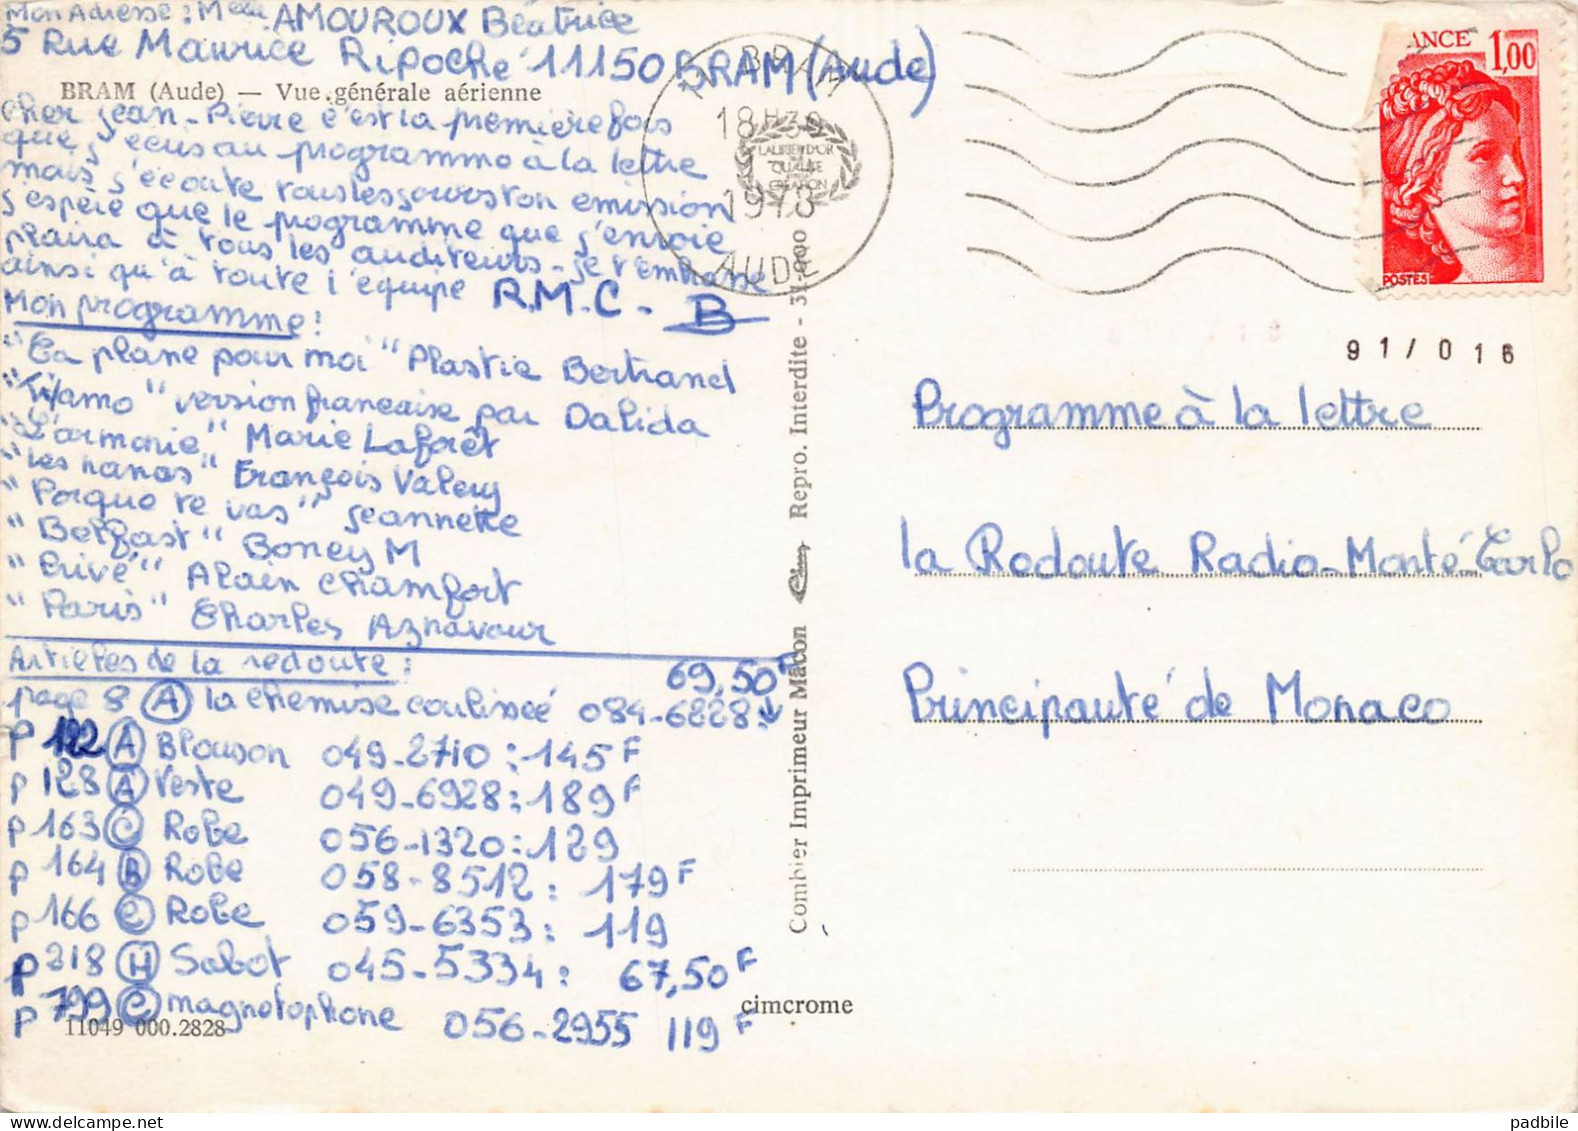 Mon Adresse : Melle AMOUROUX Béatrice
5 Rue Maurice Ripoche 11150 BRAM (Aude)
BRAM (Aude) — Vue générale aérienne
Cher Jean-Pierre c'est la première fois
que j'écris au programme à la lettre
mais j'écoute tous les jours ton émission
j'espère que le programme que j'envoie
plaira à tous les auditeurs - je t'embrasse
ainsi qu'à toute l'équipe R.M.C - B
Mon programme !
"Ca plane pour moi" Plastic Bertrand
"Ti amo" version francaise par Dalida
"L'armonie" Marie Laforêt
"les nanas" François Valery
"Porque te vas" Jeannette
"Belfast" Boney M
"Privé" Alain Chamfort
"Paris" Charles Aznavour
Articles de la redoute :
69,50 F
page 8 (A) la chemise coulissée 084-6228
p 122 (A) Blouson 049-2710 : 145 F
p 128 (A) Veste 049-6928 : 189 F
p 163 (C) Robe 056-1320 : 129
p 164 (B) Robe 058-8512 : 179 F
p 166 (C) Robe 059-6353 : 119
p 218 (H) Sabot 045-5334 : 67,50 F
p 799 (C) magnetophone 056-2955 119 F
11049 000.2828
cimcrome
Combier Imprimeur Mâcon Cim Repro. Interdite -
BRAM
18 H 30
1978
AUDE
LAURIER D'OR
QUALITE
CREATION
ANCE 1,00
POSTES
91/016
Programme à la lettre
la Redoute Radio-Monté-Carlo
Principauté de Monaco
padbile